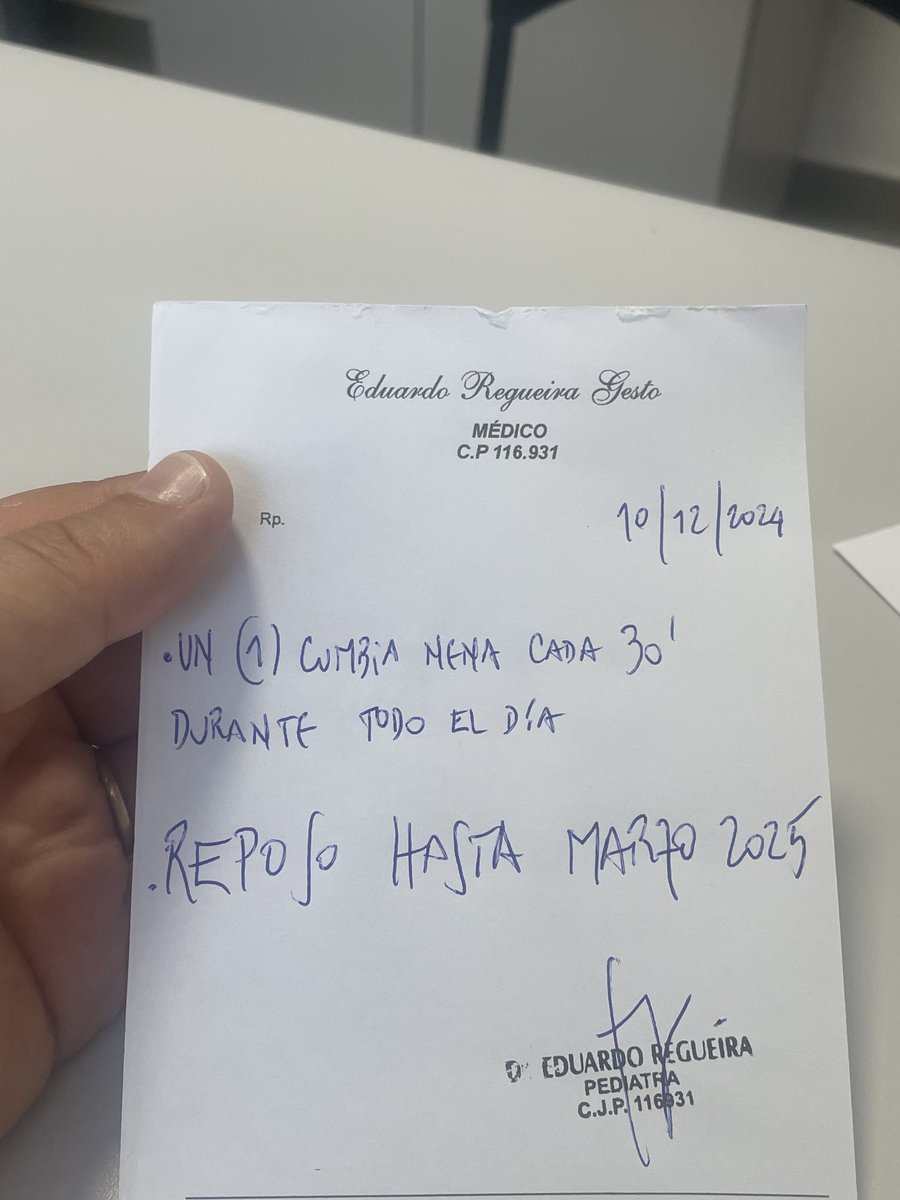 Eduardo Regueira Gesto
MÉDICO
C.P 116.931
Rp.
10/12/2024
.UN (1) CUMBIA NENA CADA 30'
DURANTE TODO EL DÍA
.REPOSO HASTA MARZO 2025
Dr EDUARDO REGUEIRA
PEDIATRA
C.J.P. 116931